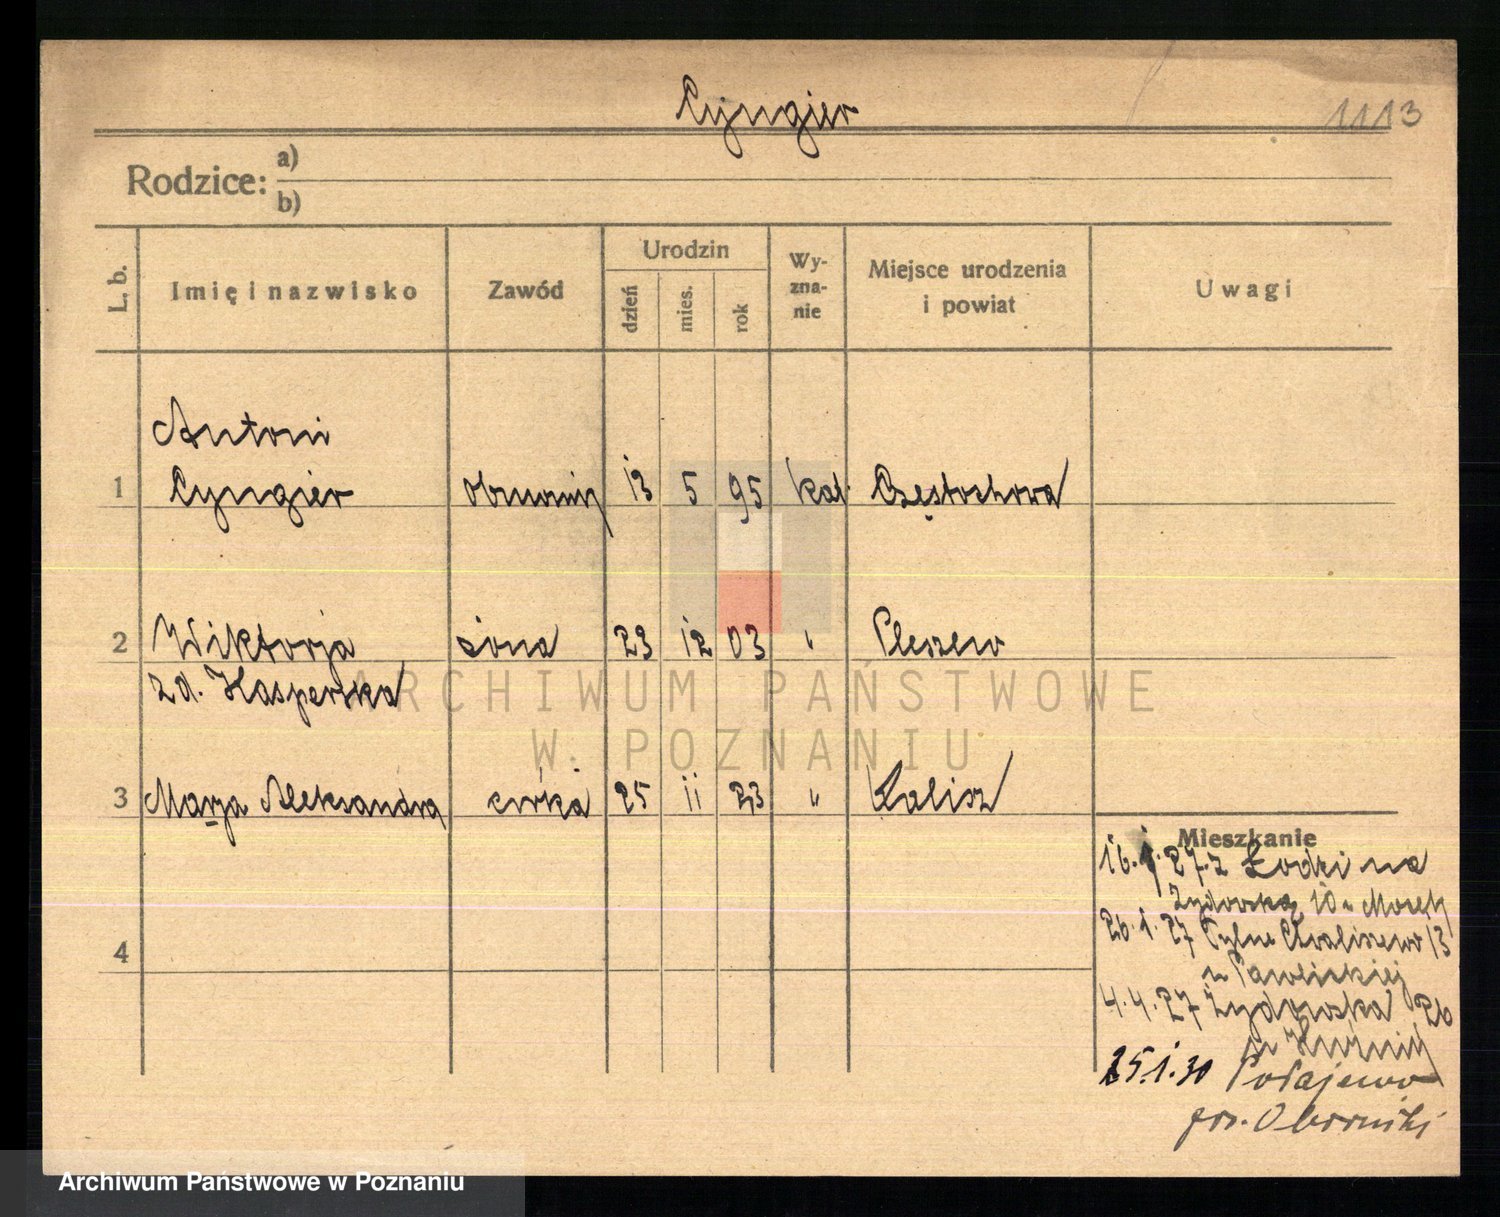 Cyngier
1113
Rodzice: a)
b)
L. b. Imię i nazwisko Zawód Urodzin dzień mies. rok Wy-zna-nie Miejsce urodzenia i powiat Uwagi
Antoni
1 Cyngier 13 5 95 kat. Częstochowa
2 Wiktorja żona 23 12 03 " Pleszew
zd. Kasperska
ARCHIWUM PAŃSTWOWE
W POZNANIU
3 Marja Aleksandra córka 25 11 23 " Kalisz
Mieszkanie
16.1.27 z Łodzi na
Żydowską 10 u
4
26.1.27 Tylne Chwaliszewo 13
u Pawlickiej
4.4.27 Żydowska 26
u
25.1.30 Połajewo
pow. Oborniki
Archiwum Państwowe w Poznaniu